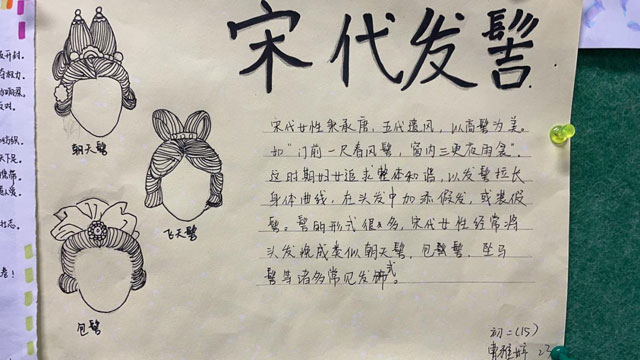 宋代发髻
朝天髻
飞天髻
包髻
宋代女性秉承唐，五代遗风，以高髻为美。
如“门前一尺春风髻，窗内三更夜雨衾”。
这时期妇女追求整体和谐，以发髻拉长
身体曲线，在头发中加添假发，或装假
髻。髻的形式很多，宋代女性经常将
头发挽成类似朝天髻、包髻、坠马
髻等诸多常见发饰式。
初二(15)